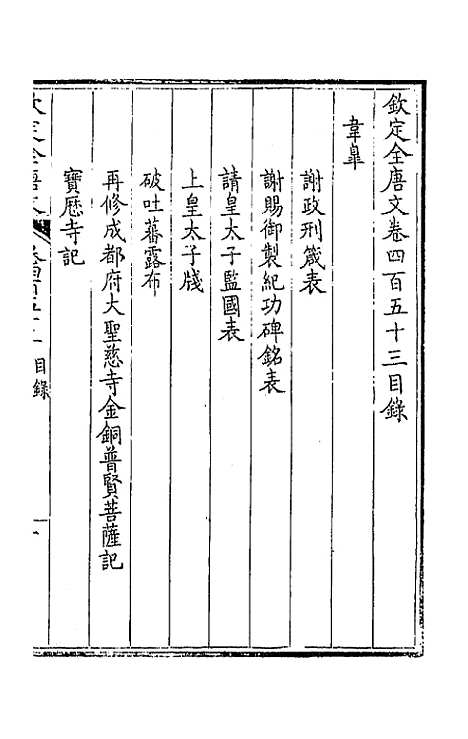 欽定全唐文卷四百五十三目錄
韋臯
謝政刑箴表
謝賜御製紀功碑銘表
請皇太子監國表
上皇太子牋
破吐蕃露布
再修成都府大聖慈寺金銅普賢菩薩記
寶歷寺記
目錄
一